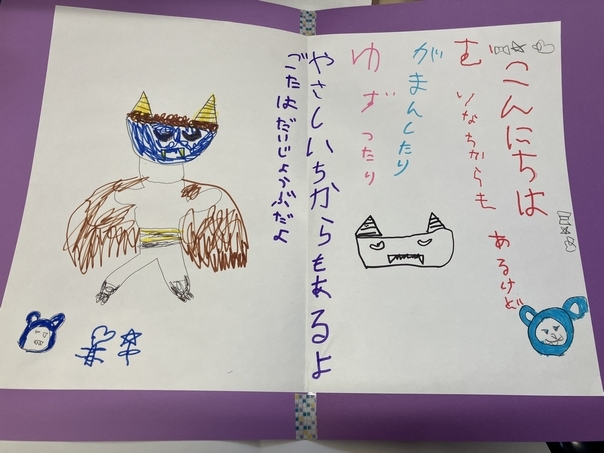 こんにちは
むりなちからも
あるけど
がまんしたり
ゆずったり
やさしいちからもあるよ
ごたはだいじょうぶだよ